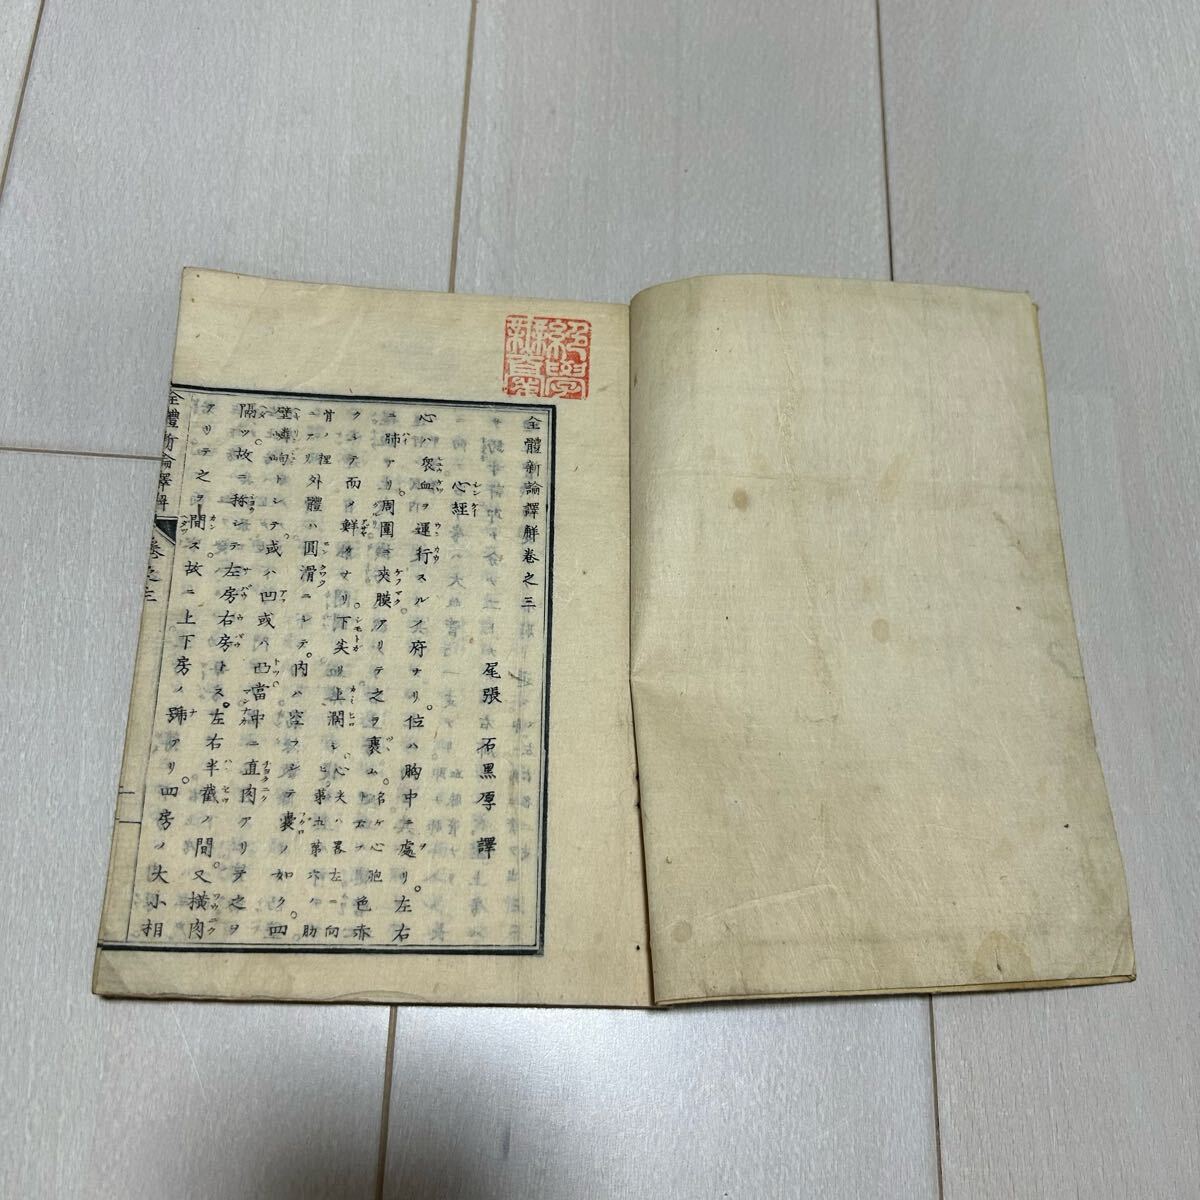 全體新論譯解卷之三
尾張 石黒厚 譯
心經
心ハ衆血ヲ運行スルノ府ナリ。位ハ胸中ニ處リ。左右
ニ肺アリ。周圍ニ夾膜アリテ之ヲ裹ム。名ケ心胞
色赤クシテ而〆鮮ナリ。下尖リ上濶シ。心尖ハ畧左ニ向
ニアリ外體ハ圓滑ニシテ。内ハ空フシテ囊ノ如ク。四
壁嶙峋トシテ。或ハ凹或ハ凸當中ニ直肉アリテ之ヲ
隔ツ。故ニ称シテ左房右房トス。左右半截ノ間。又横肉
アリテ之ヲ間ス。故ニ上下房ノ號アリ。四房ノ大小相
全體新論譯解 卷之三